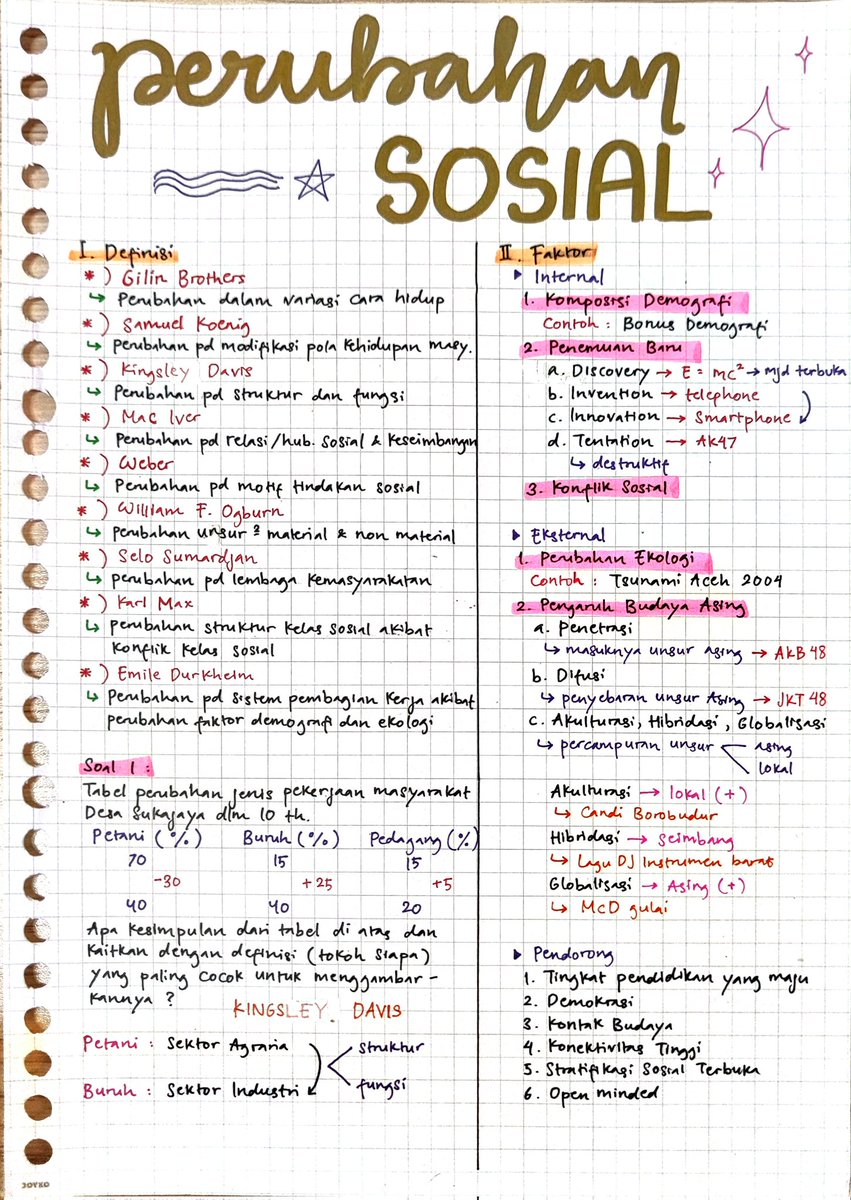 perubahan
SOSIAL
I. Definisi
*) Gilin Brothers
↳ Perubahan dalam variasi cara hidup
*) Samuel Koenig
↳ Perubahan pd modifikasi pola kehidupan masy.
*) Kingsley Davis
↳ Perubahan pd struktur dan fungsi
*) Mac Iver
↳ Perubahan pd relasi/hub. sosial & keseimbangan
*) Weber
↳ Perubahan pd motif tindakan sosial
*) William F. Ogburn
↳ Perubahan unsur² material & non material
*) Selo Sumardjan
↳ perubahan pd lembaga kemasyarakatan
*) Karl Max
↳ perubahan struktur kelas sosial akibat
konflik kelas sosial
*) Emile Durkheim
↳ Perubahan pd sistem pembagian kerja akibat
perubahan faktor demografi dan ekologi
Soal 1 :
Tabel perubahan jenis pekerjaan masyarakat
Desa Sukajaya dlm 10 th.
Petani (%) Buruh (%) Pedagang (%)
70 15 15
-30 +25 +5
40 40 20
Apa kesimpulan dari tabel di atas dan
kaitkan dengan definisi (tokoh siapa)
yang paling cocok untuk menggambar-
kannya ?
KINGSLEY DAVIS
Petani : Sektor Agraria
struktur
fungsi
Buruh : Sektor Industri
II. Faktor
▶ Internal
1. Komposisi Demografi
Contoh : Bonus Demografi
2. Penemuan Baru
a. Discovery → E = mc² → mjd terbuka
b. Invention → telephone
c. Innovation → Smartphone
d. Tentation → AK47
↳ destruktif
3. Konflik Sosial
▶ Eksternal
1. Perubahan Ekologi
Contoh : Tsunami Aceh 2004
2. Pengaruh Budaya Asing
a. Penetrasi
↳ masuknya unsur asing → AKB 48
b. Difusi
↳ penyebaran unsur Asing → JKT 48
c. Akulturasi, Hibridasi, Globalisasi
↳ percampuran unsur
asing
lokal
Akulturasi → lokal (+)
↳ Candi Borobudur
Hibridasi → Seimbang
↳ Lagu DJ Instrumen barat
Globalisasi → Asing (+)
↳ McD gulai
▶ Pendorong
1. Tingkat pendidikan yang maju
2. Demokrasi
3. Kontak Budaya
4. Konektivitas Tinggi
5. Stratifikasi Sosial Terbuka
6. Open minded
JOYKO